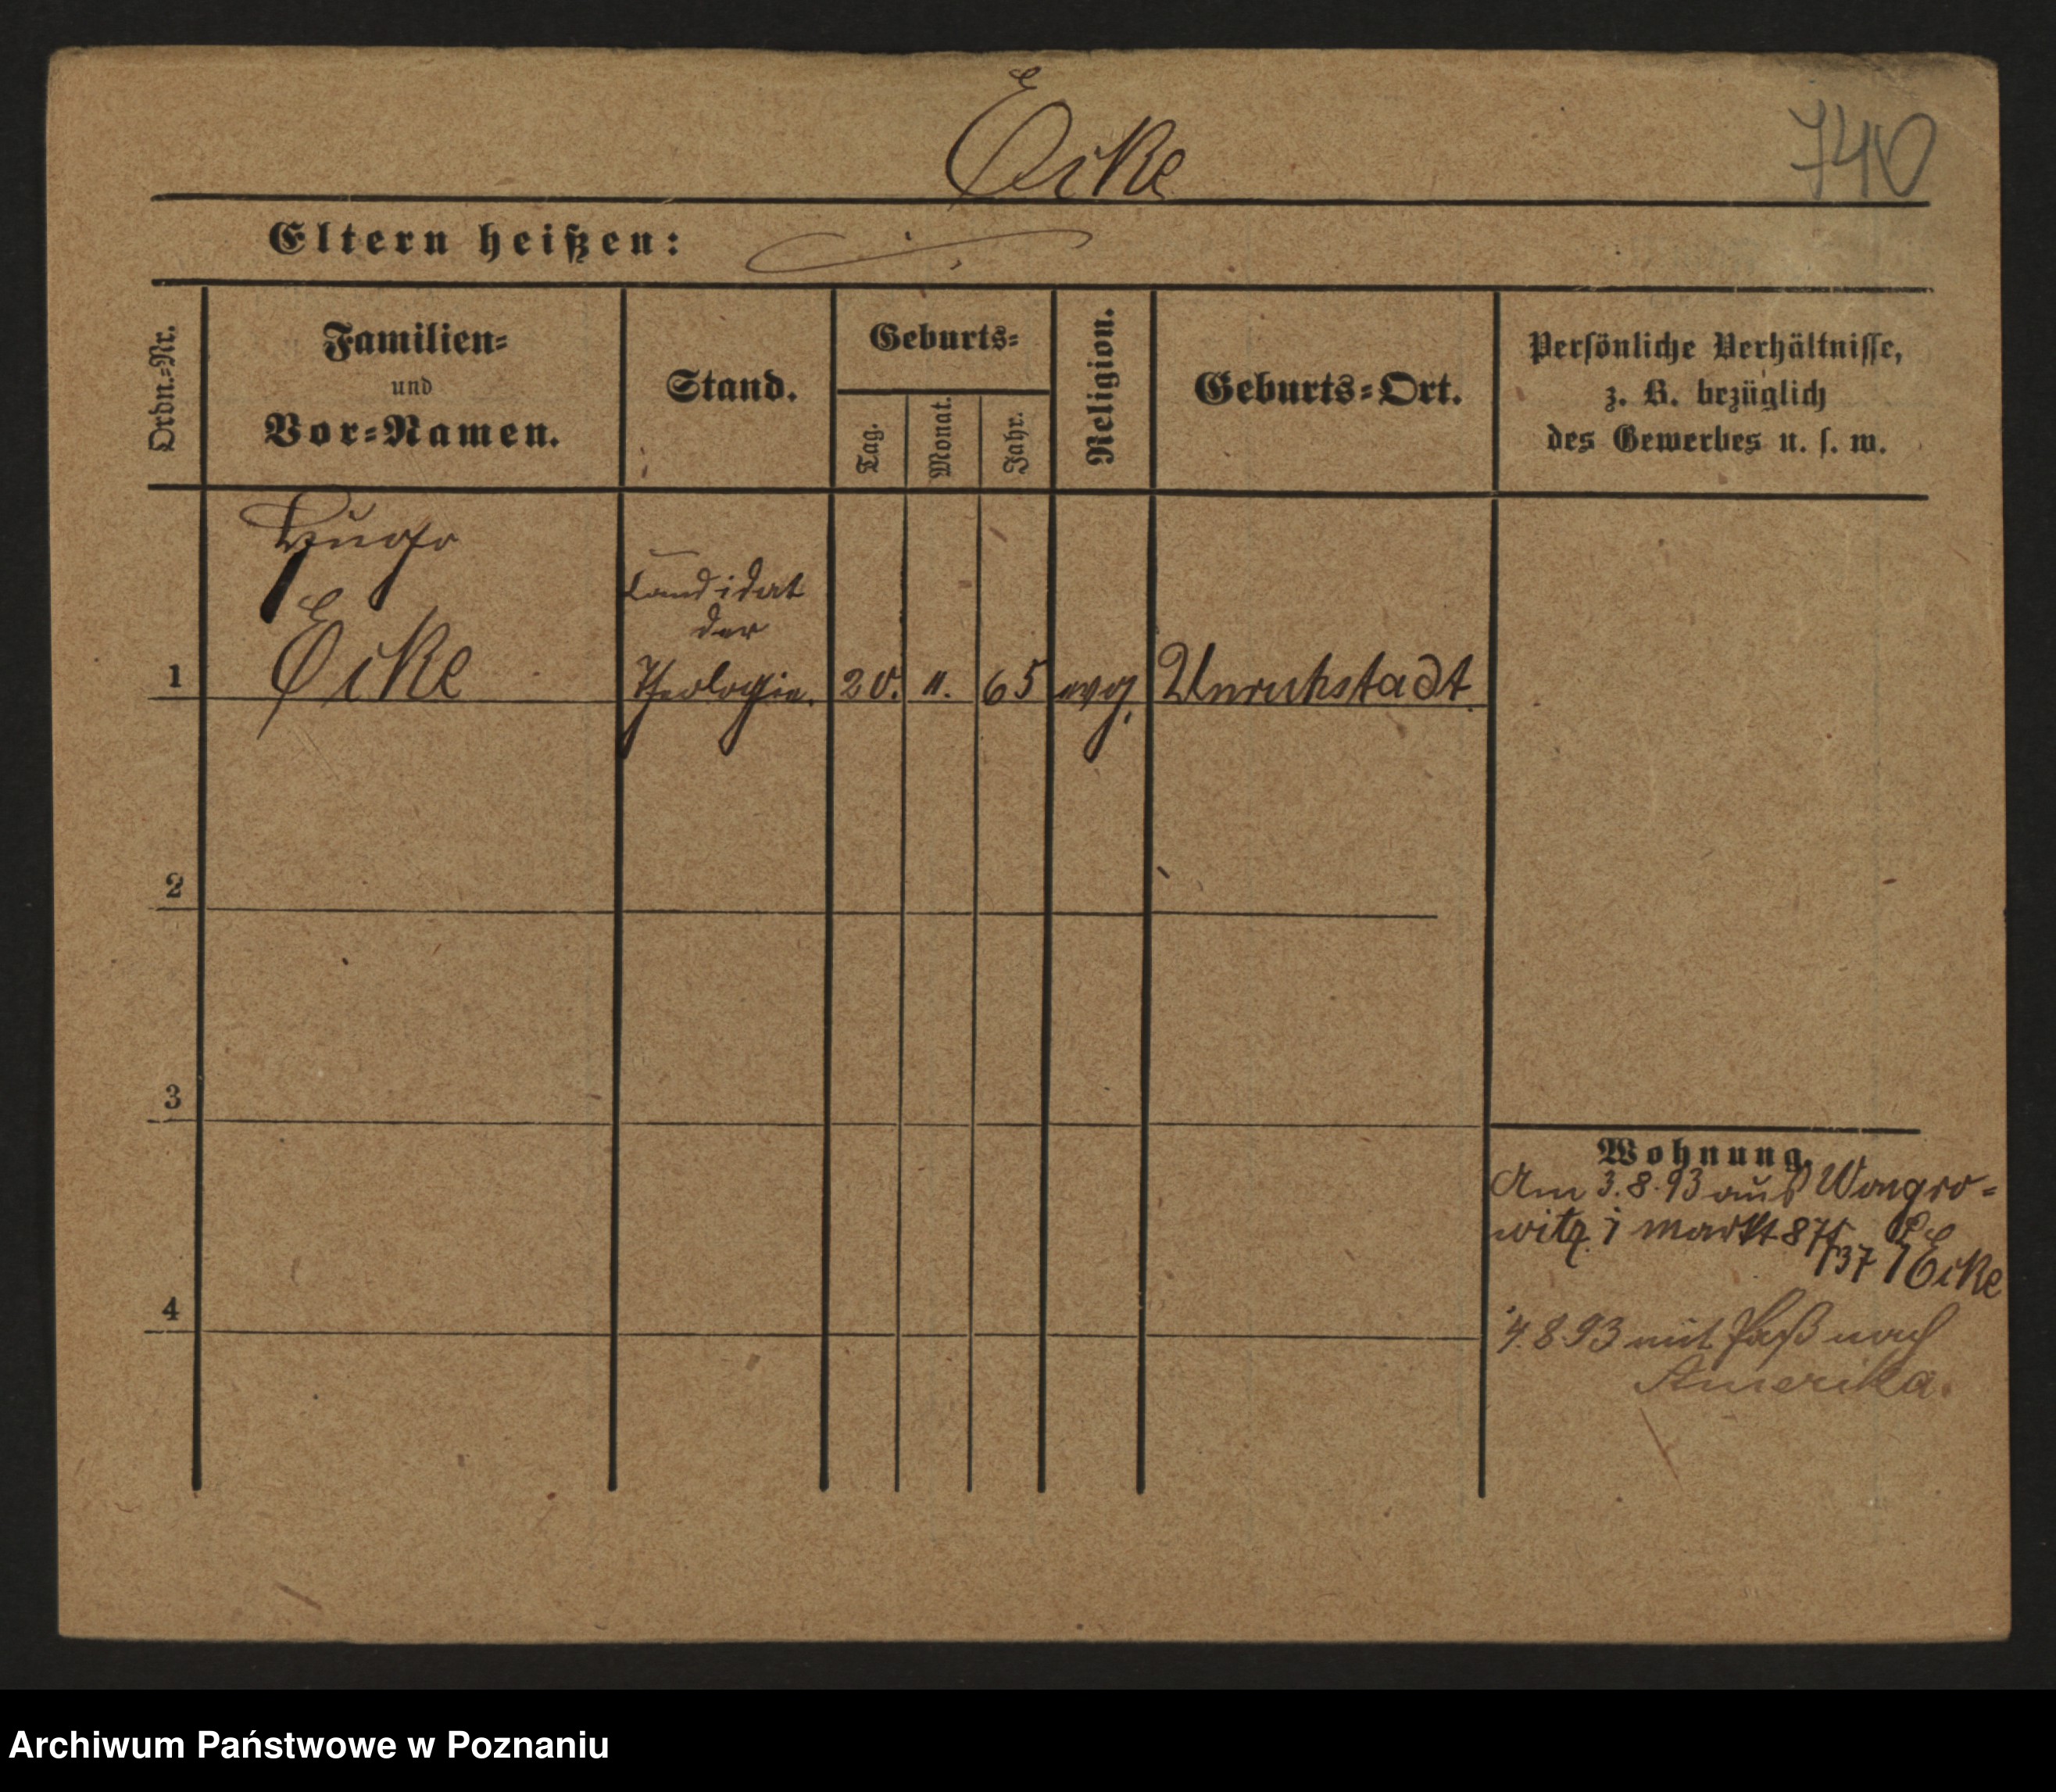 Eike
740
Eltern heißen:
Ordn.=Nr.
Familien=
und
Vor=Namen.
Stand.
Geburts=
Tag.
Monat.
Jahr.
Religion.
Geburts=Ort.
Persönliche Verhältnisse,
z. B. bezüglich
des Gewerbes u. s. w.
Hugo
Eike
Candidat
der
Theologie.
1
20. 11. 65 evg. Unruhstadt.
2
3
4
Wohnung.
Am 3.8.93 aus Wongro=
witz. Markt 87
737 Eike
4.8.93 mit Paß nach
Amerika.
Archiwum Państwowe w Poznaniu